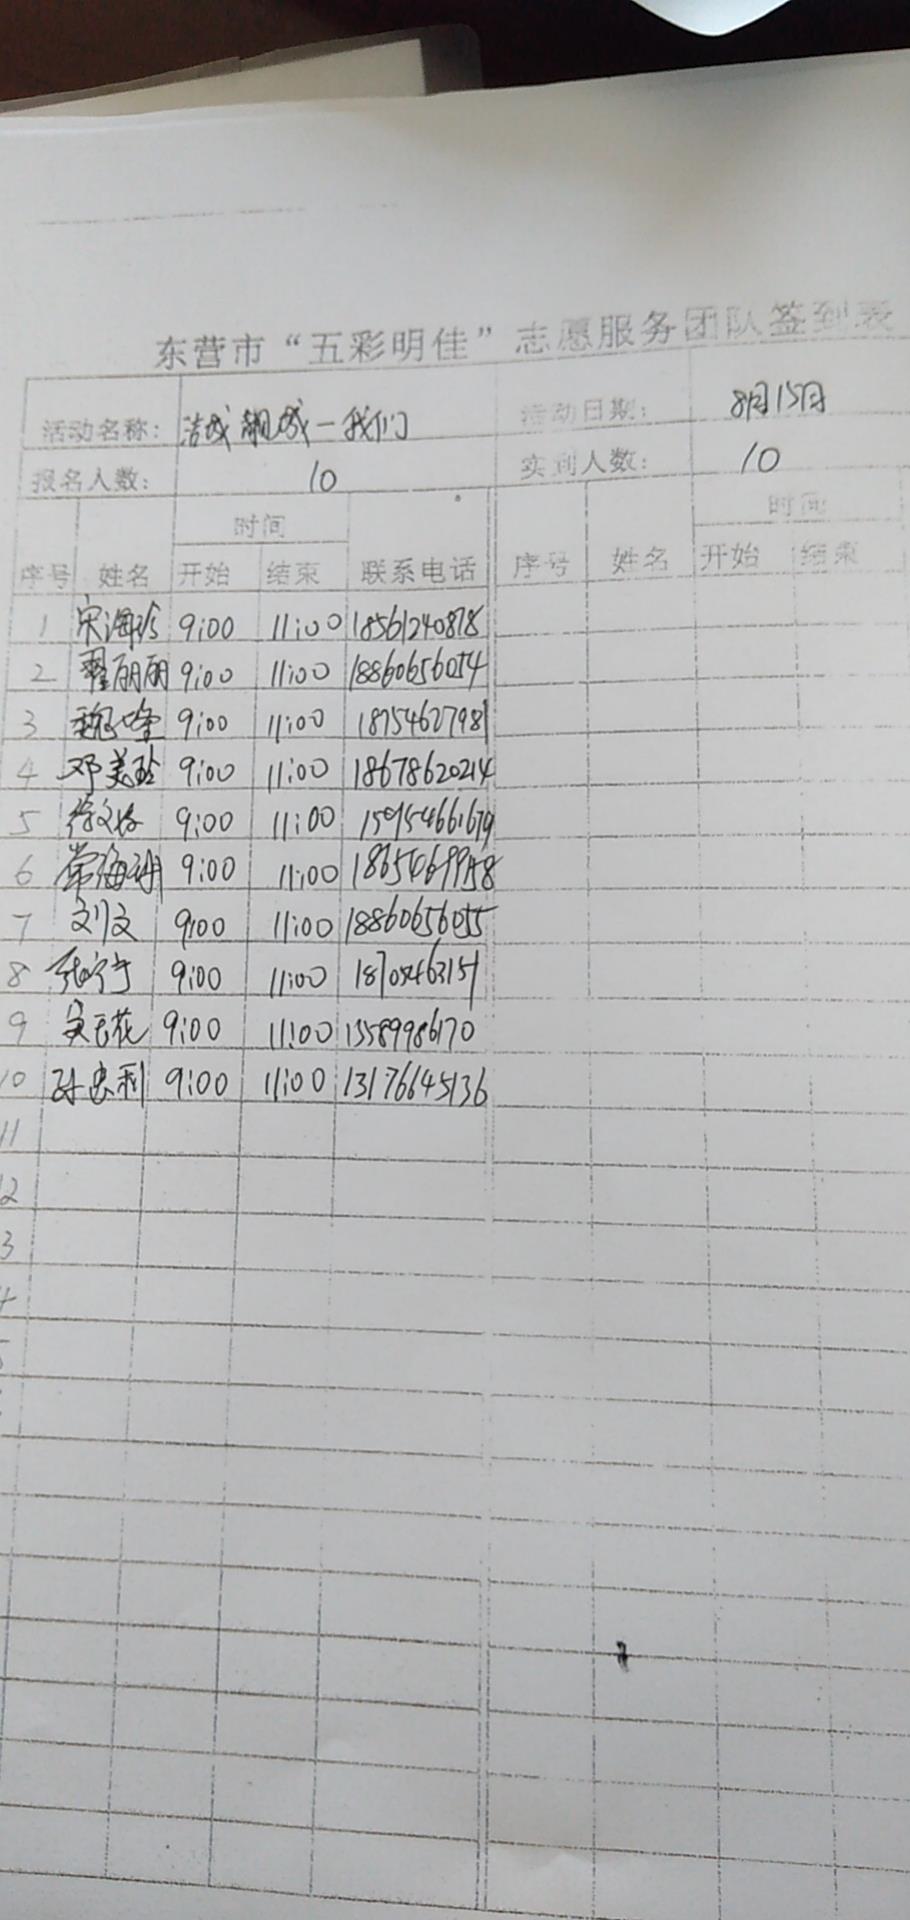 东营市“五彩明佳”志愿服务团队签到表
活动名称： 活动日期： 8月15日
报名人数： 10 实到人数： 10
时间 时间
序号 姓名 开始 结束 联系电话 序号 姓名 开始 结束
1 宋海珍 9:00 11:00 18561240878
2 翟丽丽 9:00 11:00 18860656054
3 魏峰 9:00 11:00 18754627981
4 邓美玲 9:00 11:00 18678620214
5 徐文 9:00 11:00
6 常海 9:00 11:00
7 刘文 9:00 11:00 18860656055
8 张宁宁 9:00 11:00
9 9:00 11:00 13589986170
10 孙忠利 9:00 11:00 13176645136
11
12